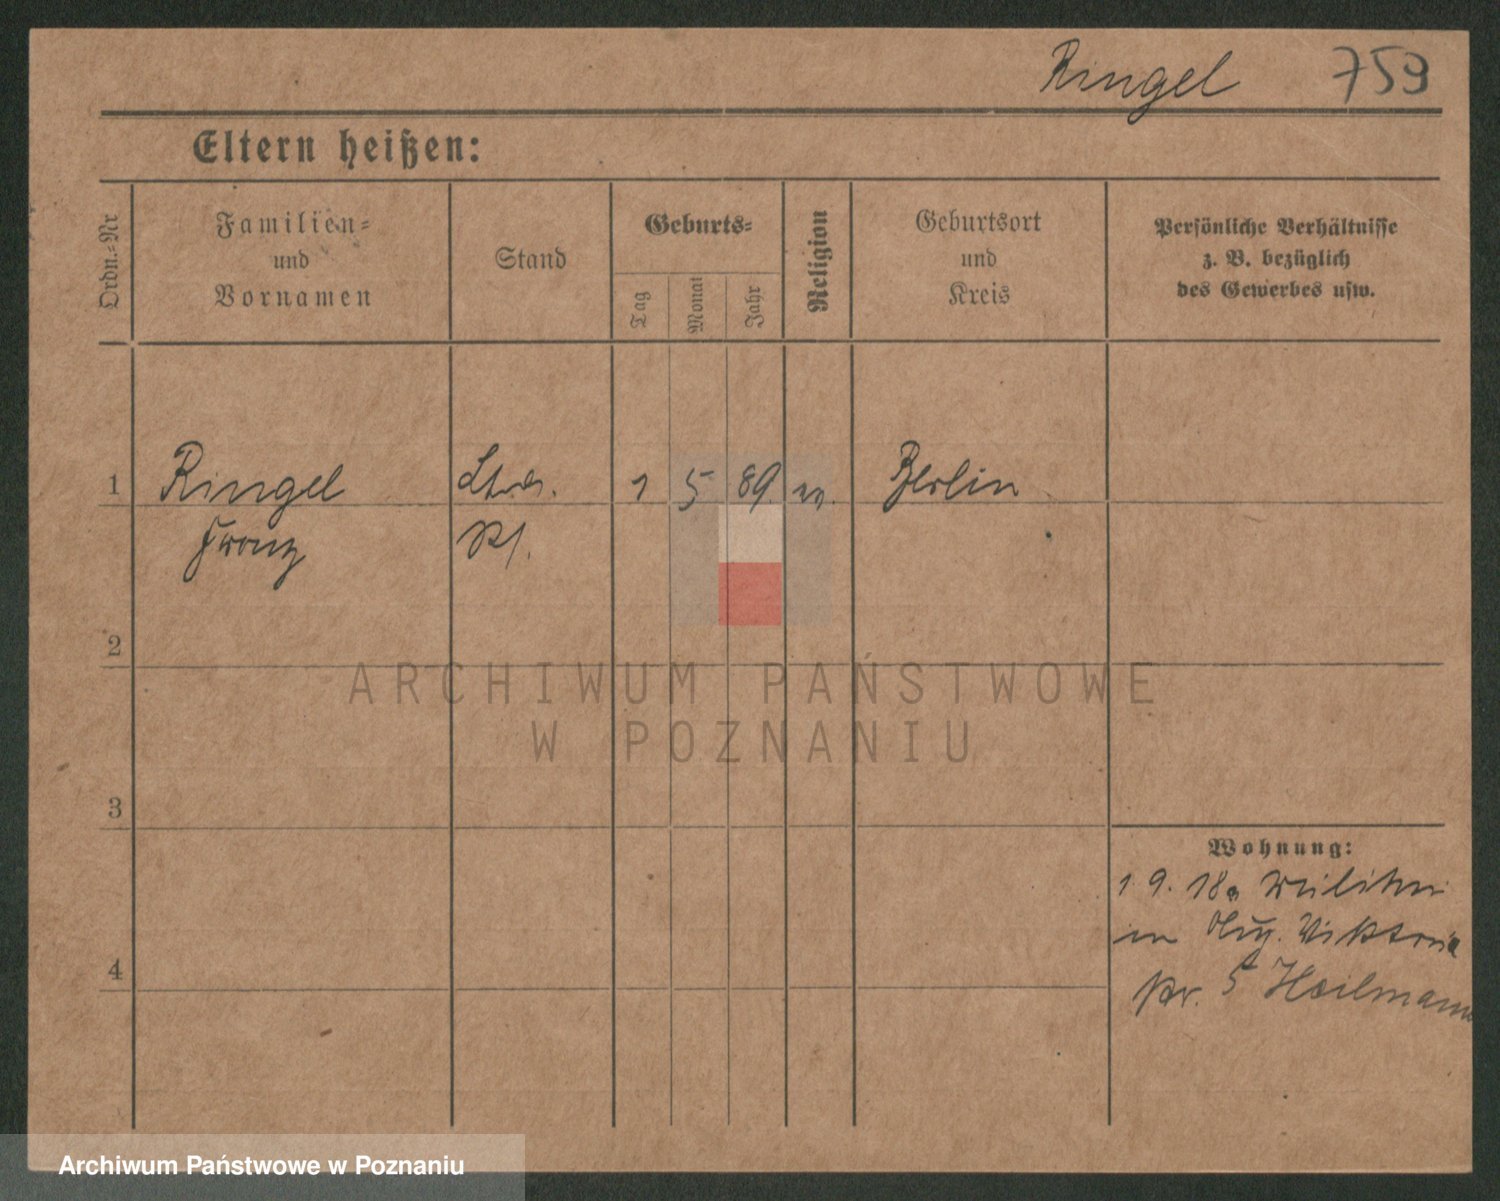 Ringel 759
Eltern heißen:
Ordn.-Nr
Familien-
und
Vornamen
Stand
Geburts-
Tag
Monat
Jahr
Religion
Geburtsort
und
Kreis
Persönliche Verhältnisse
z. B. bezüglich
des Gewerbes usw.
1 Ringel 1 5 89 Berlin
Franz
2
ARCHIWUM PAŃSTWOWE
W POZNANIU
3
Wohnung:
1. 9. 18.
Viktoria
4
5 Heilmann
Archiwum Państwowe w Poznaniu